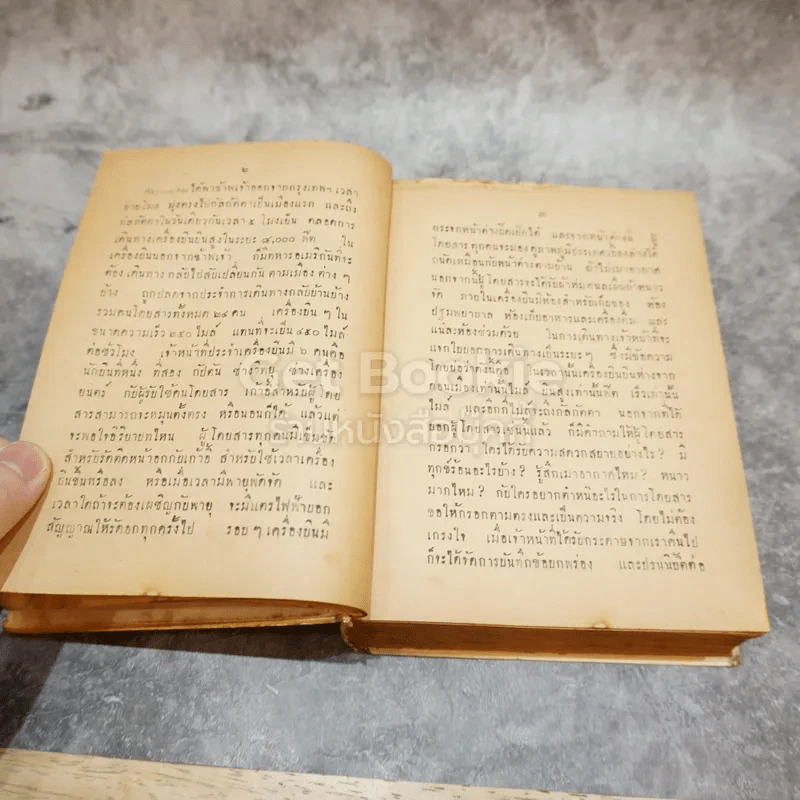 ๒
ได้พาข้าพเจ้าออกจากกรุงเทพฯ เวลา
บ่ายโมง มุ่งตรงไปกัลกัตตาเป็นเมืองแรก และถึง
กัลกัตตาในวันเดียวกันเวลา ๕ โมงเย็น ตลอดการ
เดินทางเครื่องบินบินสูงในระยะ ๘,๐๐๐ ฟีต ใน
เครื่องบินนอกจากข้าพเจ้า ก็มีทหารอเมริกันที่จะ
ต้องเดินทางกลับไปสับเปลี่ยนกันตามเมืองต่าง ๆ
บ้าง ถูกปลดจากประจำการเดินทางกลับบ้านบ้าง
รวมคนโดยสารทั้งหมด ๒๔ คน เครื่องบิน ๆ ใน
ขนาดความเร็ว ๒๕๐ ไมล์ แทนที่จะเป็น ๔๕๐ ไมล์
ต่อชั่วโมง เจ้าหน้าที่ประจำเครื่องบินมี ๖ คนคือ
นักบินที่หนึ่ง ที่สอง กัปตัน ช่างวิทยุ ช่างเครื่อง
ยนตร์ กับผู้รับใช้คนโดยสาร เก้าอี้สำหรับผู้โดย
สารสามารถจะหมุนตั้งตรง หรือนอนก็ได้ แล้วแต่
จะพอใจอิริยาบทไหน ผู้โดยสารทุกคนมีเข็มขัด
สำหรับรัดติดหน้าอกกับเก้าอี้ สำหรับใช้เวลาเครื่อง
บินขึ้นหรือลง หรือเมื่อเวลามีพายุพัดจัด และ
เวลาใดถ้าจะต้องเผชิญกับพายุ จะมีแตรไฟฟ้าบอก
สัญญาณให้รัดอกทุกครั้งไป รอบ ๆ เครื่องบินมี
๓
กระจกหน้าต่างปิดเปิดได้ และจากหน้าต่างนี้
โดยสารทุกคนจะมองดูภาพภูมิประเทศเบื้องล่างได้
ถนัดเหมือนกับหน้าต่างตามบ้าน ถ้าไม่เมาอากาศ
นอกจากนี้ผู้โดยสารจะได้รับผ้าห่มคนละผืนถ้าหนาว
จัด ภายในเครื่องบินมีห้องสำหรับเก็บของ ห้อง
ปฐมพยาบาล ห้องเก็บอาหารและเครื่องดื่ม และ
แน่ละห้องซ่วมด้วย ในการเดินทางเจ้าหน้าที่จะ
แจกใบบอกการเดินทางเป็นระยะๆ ซึ่งมีข้อความ
โดยย่อว่าดังนี้คือ ในเวลานั้นเครื่องบินบินห่างจาก
ดอนเมืองเท่านั้นไมล์ บินสูงเท่านั้นฟีต เร็วเท่านั้น
ไมล์ และอีกกี่ไมล์จะถึงกัลกัตตา นอกจากที่ให้
บอกผู้โดยสารเช่นนี้แล้ว ก็มีคำถามให้ผู้โดยสาร
กรอกว่า ใครได้รับความสดวกสบายอย่างไร? มี
ทุกข์ร้อนอะไรบ้าง? รู้สึกเมาอากาศไหม? หนาว
มากไหม? กับใครอยากตำหนิอะไรในการโดยสาร
ขอให้กรอกตามตรงและเป็นความจริง โดยไม่ต้อง
เกรงใจ เมื่อเจ้าหน้าที่ได้รับกระดาษจากเราคืนไป
ก็จะได้จัดการบันทึกข้อบกพร่อง และปรนนิบัติต่อ
Get Book
ร้านหนังสือ